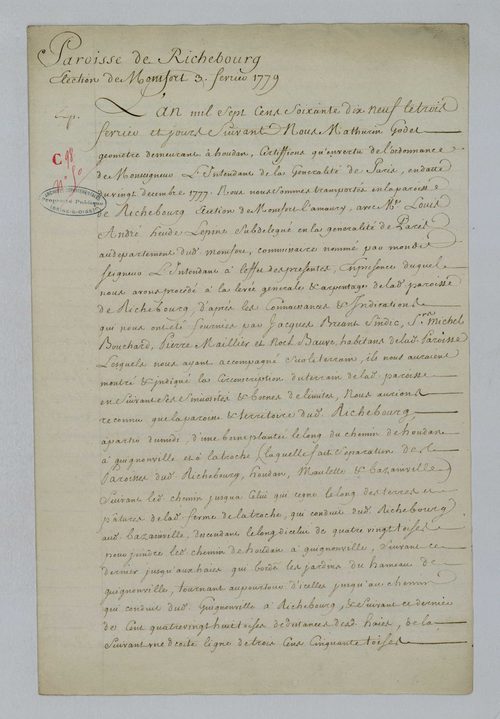 Paroisse de Richebourg
Election de Montfort 3. fevrier 1779
Exp.
L'an mil sept cens soixante dix neuf le trois
fevrier et jours suivant Nous Mathurin Godet
geometre demeurant à houdan, Certiffions qu'en vertu de l'ordonnance
de Monseigneur L'Intendant de la Generalité de Paris, en datte
du vingt decembre 1777. Nous nous sommes transportés en la paroisse
de Richebourg Election de Montfort l'amaury, avec Mr. Louis
André Subdelegué en la generalité de Paris
au departement dud. monfort, commissaire nommé par mondit
seigneur L'Intendant à l'effet des presentes, En presence duquel
nous avons procédé à la levée generale & arpentage de lad. paroisse
de Richebourg, d'après les Connaissances & Indications
qui nous ont été fournies par Jacques Breant Sindic, Michel
Bouchard, Pierre Maillier et Roch Bauve, habitans de lad. Paroisse
Lesquels nous ayant accompagné sur le terrain, ils nous auroient
montré & indiqué la Circonscription du terrain de lad. paroisse
en suivant ses et bornes de limites, Nous aurions
reconnu que la paroisse & territoire dud. Richebourg
à partir du midi, d'une borne plantée le long du chemin de houdan
à guignonville et à la troche (laquelle fait séparation de
Paroisses dud. Richebourg, houdan, Maulette & bazainville)
Suivant led. chemin jusqu'à Celui qui regne le long des terres et
pâtures de lad. ferme de la troche, qui conduit dud. Richebourg
aud. bazainville, descendant le long d'icelui de quatre vingt toises
pour joindre led. chemin de houdan à guignonville, suivant ce
dernier jusqu'aux haies qui borde les jardins du hameau de
guignonville, tournant au pourtour d'icelles jusqu'au chemin
qui conduit dud. Guignonville à Richebourg, & suivant ce dernier
de Cent quatre vingt huit toises de distances desd. haies, de la
Suivant une droite ligne de trois Cens Cinquante toises